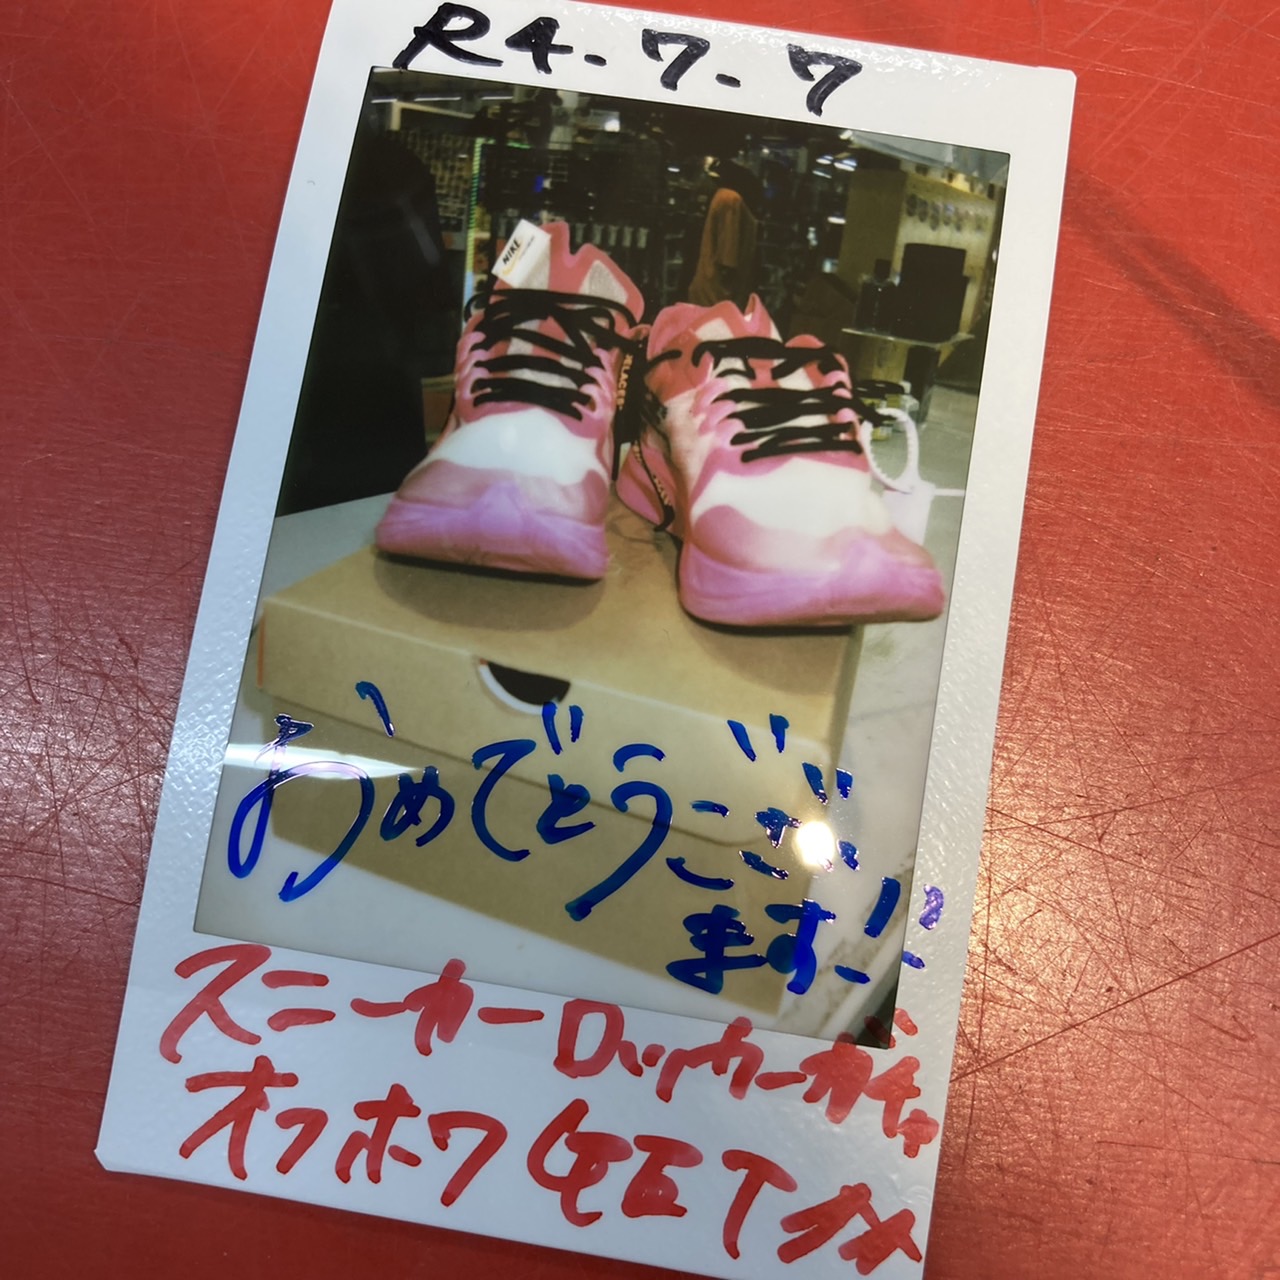 R4-7-7
NIKE
おめでとうござい
ます!!
スニーカーロッカーガチャ
オフホワGET